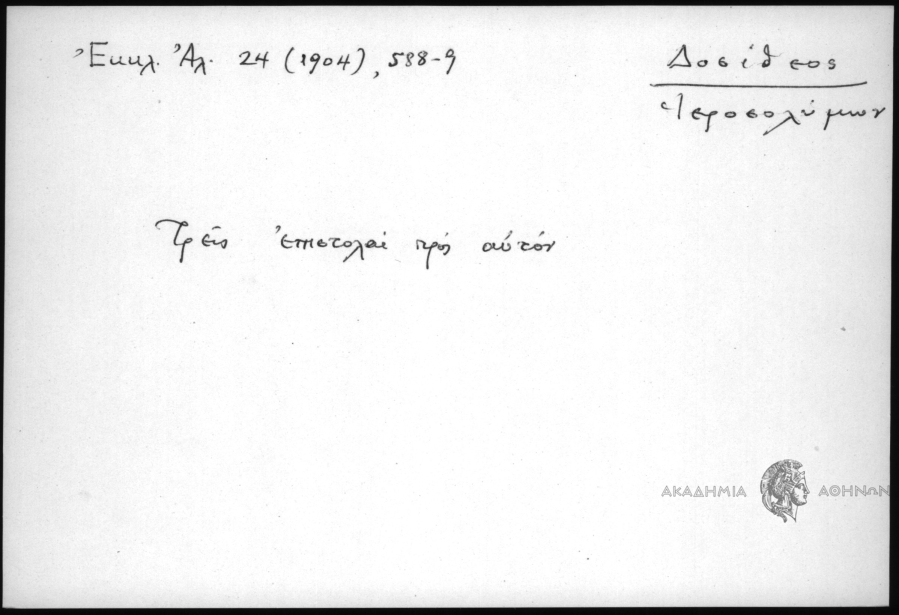 Ἐκκλ. Ἀλ. 24 (1904), 588-9
Δοσίθεος
Ἱεροσολύμων
Τρεῖς ἐπιστολαὶ πρὸς αὐτόν
ΑΚΑΔΗΜΙΑ ΑΘΗΝΩΝ